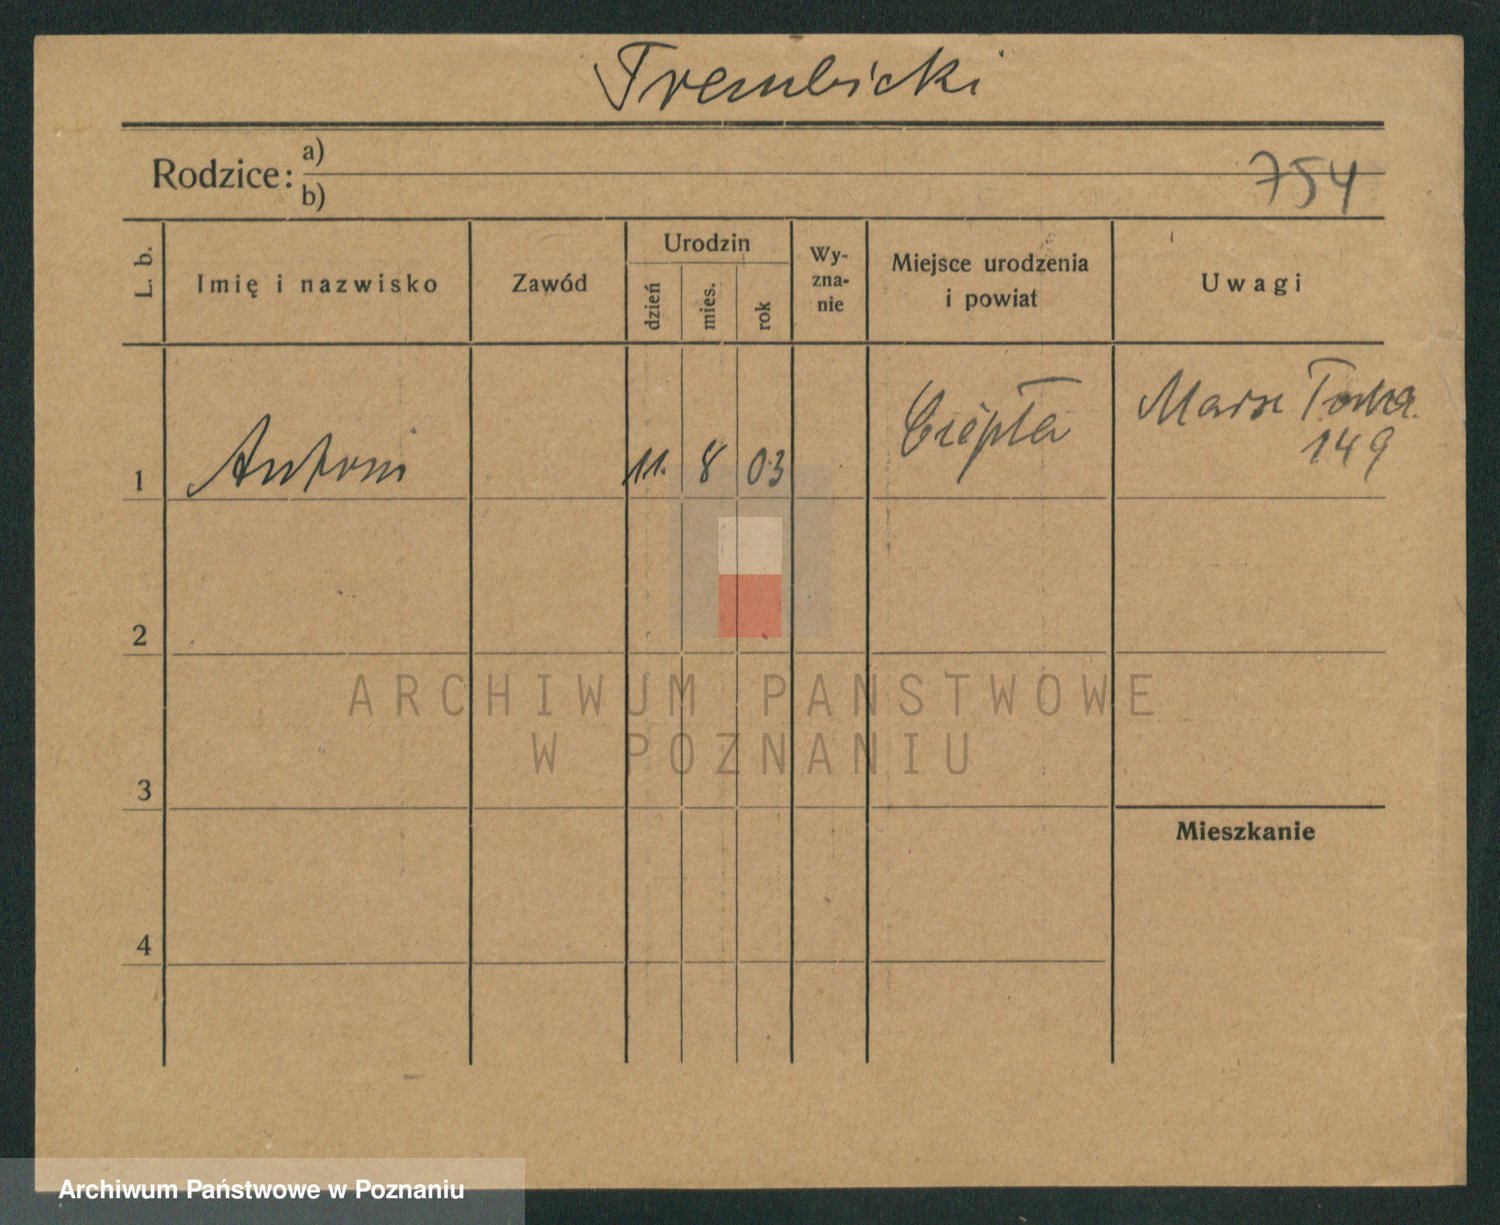 Trembicki
Rodzice: a)
b)
754
L. b.
Imię i nazwisko
Zawód
Urodzin
dzień
mies.
rok
Wy-
zna-
nie
Miejsce urodzenia
i powiat
Uwagi
1
Antoni
11.
8
03
Ciepła
Marsz
149
2
ARCHIWUM PAŃSTWOWE
W POZNANIU
3
Mieszkanie
4
Archiwum Państwowe w Poznaniu